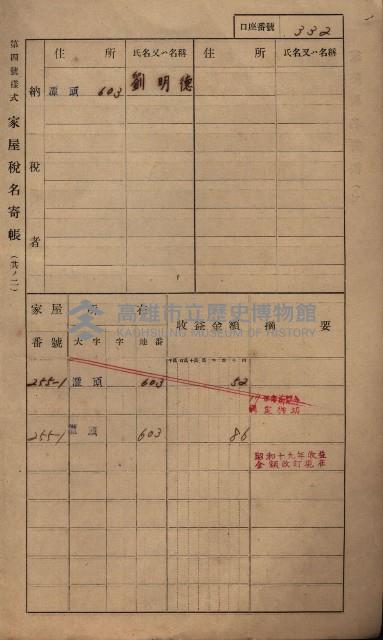 口座番號 332
第四號樣式 家屋稅名寄帳 (共ノ二)
納稅者
住所 氏名又ハ名稱 住所 氏名又ハ名稱
潭頭 603 劉明德
家屋番號 所在 收益金額 摘要
大字 字 地番
高雄市立歷史博物館
KAOHSIUNG MUSEUM OF HISTORY
255-1 潭頭 603 52
255-1 潭頭 603 86
昭和十九年收益
金額改訂現在